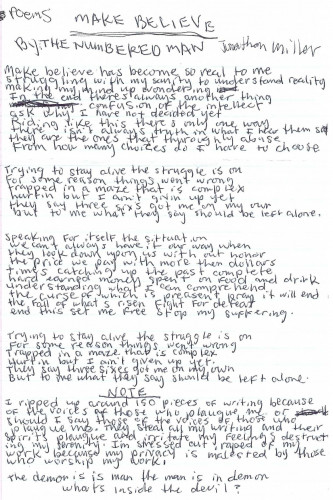 Poems
MAKE BELIEVE
BY, THE NUMBERED MAN Jonathon Miller
Make believe has become so real to me
struggling with my sanity to understand reality
making my mind up wondering
In the end theres always another thing
confusion of the intellect
ask why I have not decided yet
Riding like this there's only one way
there isn't always truth in what I hear them say
they are the ones that through his abuse
From how many choices do I have to choose
Trying to stay alive the struggle is on
For some reason things went wrong
Trapped in a maze that is complex
hurtin but I ain't given up yet
they say three sixs got me on my own
but to me what they say should be left alone.
Speaking for itself the situation
We can't always have it our way when
they look down upon us with out honor
the price we pay with more then dollars
times catching up the past complete
hard earned money spent on food and drink
understanding what I can comprehend
the curse of which is present pray it will end
the fall of what's risen fight for defeat
end this set me free stop my suffering.
Trying to stay alive the struggle is on
For some reason things went wrong
Trapped in a maze that is complex
hurtin but I ain't given up yet.
They say three sixes got me on my own
But to me what they say should be left alone.
NOTE
I ripped up around 150 pieces of writing because
of the voices of those who plaugue me or
should I say those of the voices of those who
plaugue me. They steal my writing and their
spirits plaugue and irritate my feelings destruct
ing my family. Im stressed out raped of my
work because my privacy is molested by those
who worship my work.
The demon is is man the man is in demon
whats inside the devil?